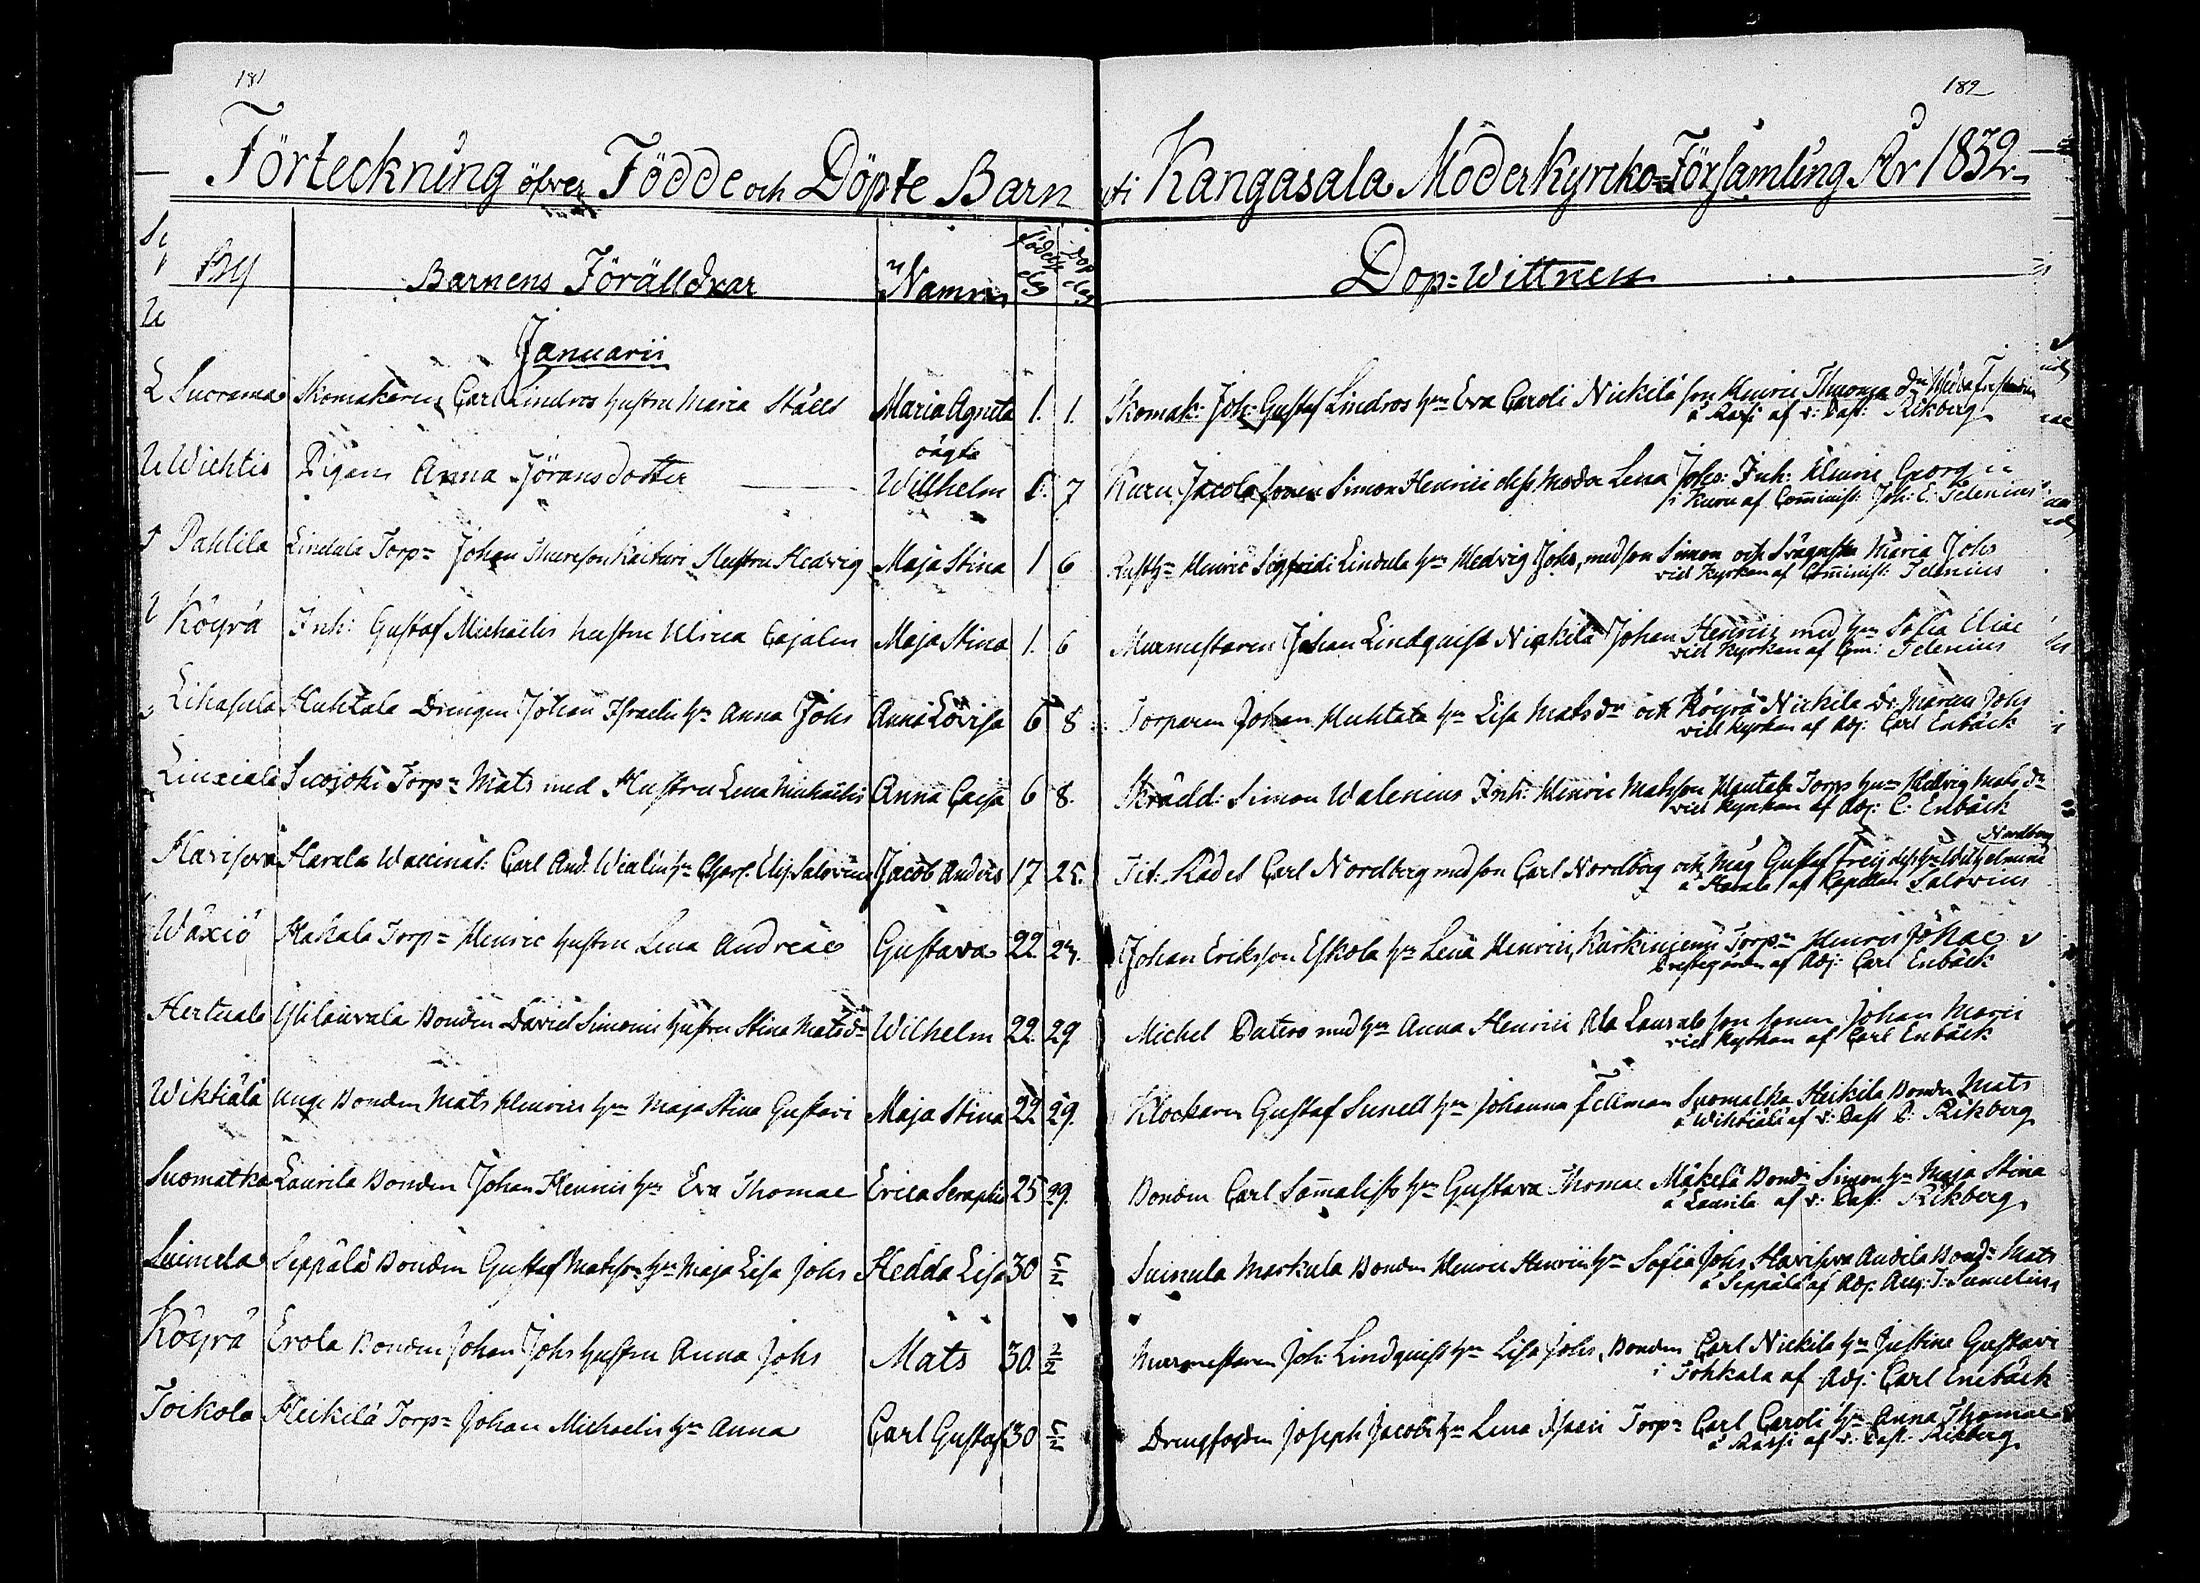 181
182
Förteckning öfver Födde och Döpte Barn uti Kangasala Moderkyrko-Församling År 1832.
By Barnens Föräldrar Namn Födelse dag Dop dag Dop-Wittnen
Januarii
Suorama Skomakaren Carl Lindros hustru Maria Ståhls Maria Agneta 1. 1. Skomak: Joh: Gustaf Lindros hu Eva Caroli Nickilä son Henric Thomæ
å Rasi af v: Past: Rikberg
oägta
Wiehtis Pigans Anna Jöransdotter Wilhelm 1. 7 Kuru Jacola sonen Simon Henrici dess Moder Lena Johs: Inh: Henric Georgii
i Kuru af Comminist: Joh: E: Telenius
Pahlila Lindula Torp= Johan Thureson Kaituri Hustru Hedvig Maja Stina 1 6 Rusth= Henric Sigfridi Lindula hu Hedvig Johs, med son Simon och Maria Johs
vid Kyrkan af Comminist: Telenius
Köyrä Inh: Gustaf Michaelis hustru Ulrica Cajalen Maja Stina 1. 6 Murmestaren Johan Lindquist Nickilä Johan Henrici med hu Sofia
vid Kyrkan af Com: Telenius
Lihasula Huhtala Drengen Johan Israelis hu Anna Johs Anna Lovisa 6 8 Torparen Johan Huhtala hu Lisa Mats dr och Köyrä Nickila Dr: Johs
vid kyrkan af Adj: Carl Enbäck
Liuxiala Suojoki Torp= Mats med Hustru Lena Michaelis Anna Cajsa 6 8. Skrädd: Simon Walenius Inh: Henric Matsson Torps hu Hedvig Mats dr
vid kyrkan af Adj: C: Enbäck
Havisova Harala Waccinat: Carl And: Wialin hu Salovius Jacob Anders 17 25. Tit: Rådet Carl Nordberg med son Carl Nordberg och Måg Gustaf Frey dess hu Wilhelmina Nordberg
å Harala af Capellan Salovius
Wäxiö Hakala Torp= Henric hustru Lena Andreæ Gustava 22. 27. Johan Ericsson Eskola hu Lena Henrici, Torp= Henric Johac
Prestegården af Adj: Carl Enbäck
Hertuala Yli Laurala Bonden David Simonis hustru Stina Mats dr Wilhelm 22. 29 Michel Daters med hu Anna Henrici Ala Laurala son sonen Johan
vid Kyrkan af Carl Enbäck
Wihtiälä Unge Bonden Mats Henrici hu Maja Stina Gustavi Maja Stina 22 29. Klockaren Gustaf Sunell hu Johanna Fellman Suomatka Heikila Bonden Mats
å Wihtiälä af v: Past C: Rikberg
Suomatka Laurila Bonden Johan Henrici hu Eva Thomae Erica Seraphia 25 29. Bonden Carl hu Gustava Thomae Mäkelä Bond= Simon hu Maja Stina
å Laurila af v: Past: Rikberg
Suinula Seppälä Bonden Gustaf Matsson hu Maja Lisa Johs Hedda Lisa 30 5/2 Suinula Markula Bonden Henric Henrici hu Sofia Johs Havisova Andila Bond= Mats
å Seppälä af Adj: Aug: J: Sumelius
Köyrä Erola Bonden Johan Johs hustru Anna Johs Mats 30. 2/2 Murmestaren Joh: Lindquist hu Lisa Johs, Bonden Carl Nickila hu Justina Gustavi
i Tohkala af Adj: Carl Enebäck
Toikola Heikilä Torp= Johan Michaelis hu Anna Carl Gustaf 30 5/2 Drengfogden Joseph Jacobi hu Lena Isaci Torp= Carl Caroli hu Anna Thomae
å Rasi af v: Past: Rikberg